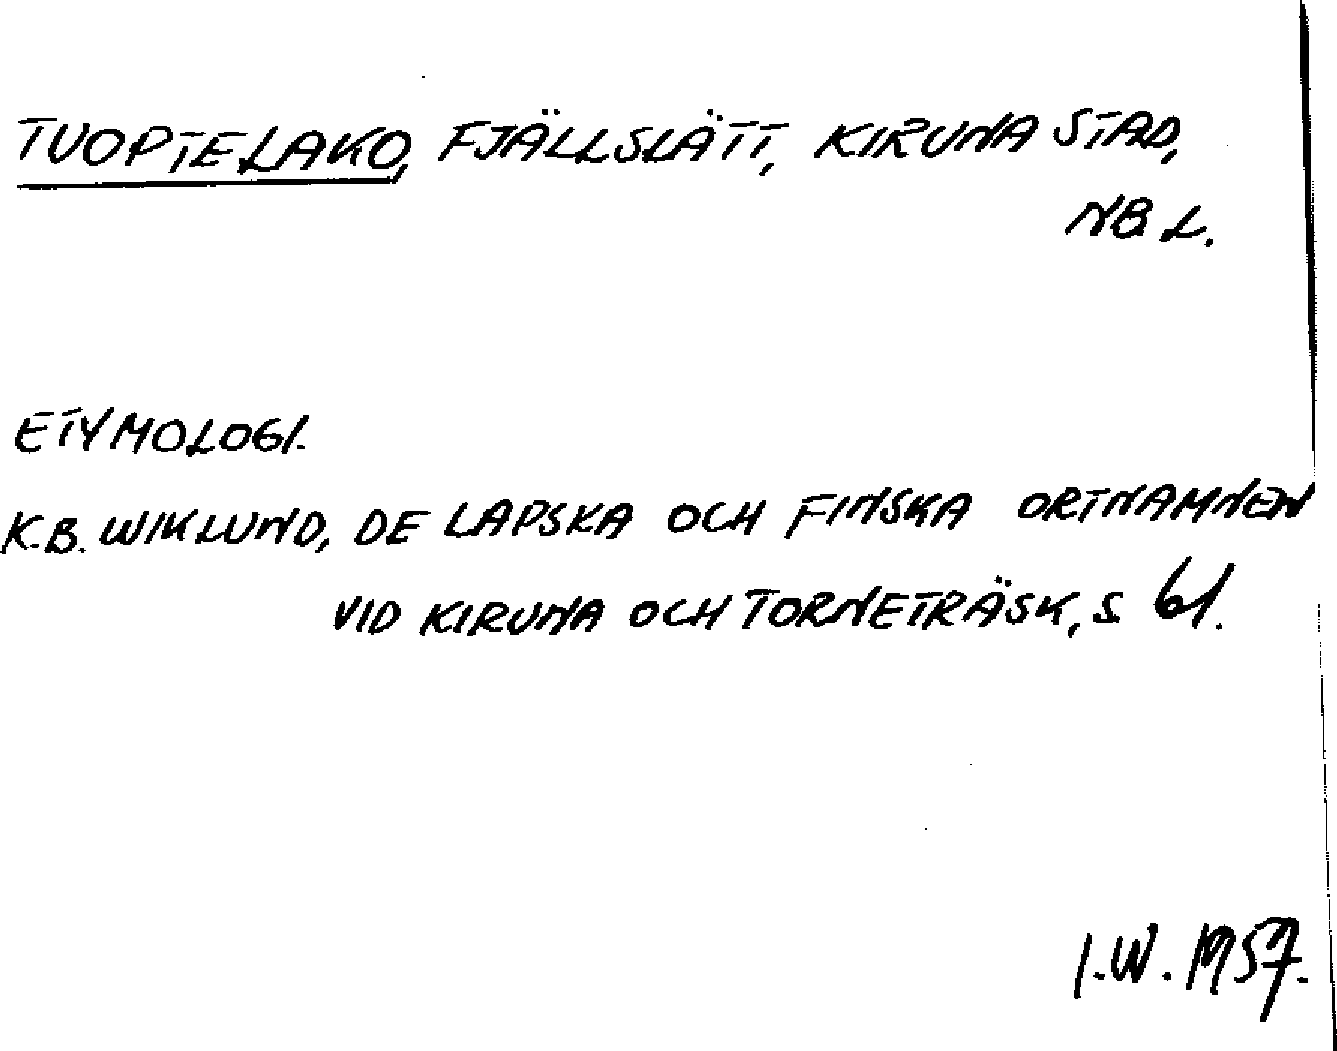 TUOPTELAKO, FJÄLLSLÄTT, KIRUNA STAD,
NB L.
ETYMOLOGI.
K.B. WIKLUND, DE LAPSKA OCH FINSKA ORTNAMNEN
VID KIRUNA OCH TORNETRÄSK, S 61.
I.W. 1957.